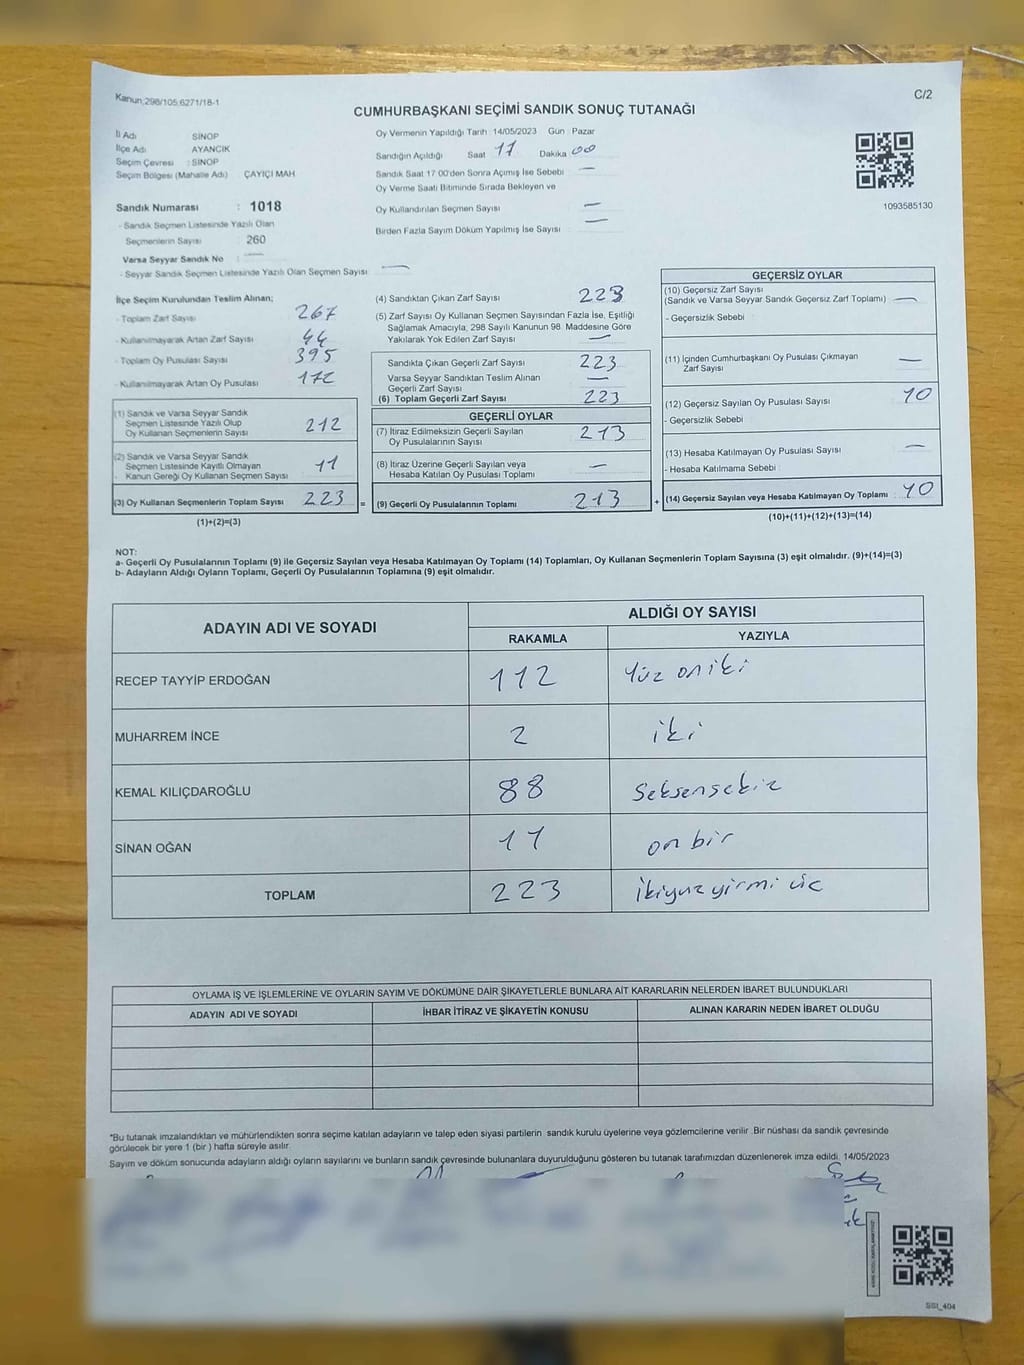 Kanun;298/105;6271/18-1
C/2
CUMHURBAŞKANI SEÇİMİ SANDIK SONUÇ TUTANAĞI
İl Adı SİNOP
İlçe Adı AYANCIK
Seçim Çevresi : SİNOP
Seçim Bölgesi (Mahalle Adı) ÇAYIÇI MAH
Oy Vermenin Yapıldığı Tarih 14/05/2023 Gün : Pazar
Sandığın Açıldığı Saat 17 Dakika 00
Sandık Saat 17 00'den Sonra Açımış İse Sebebi —
Oy Verme Saati Bitiminde Sırada Bekleyen ve
Oy Kullandırılan Seçmen Sayısı —
Birden Fazla Sayım Döküm Yapılmış İse Sayısı —
1093585130
Sandık Numarası : 1018
- Sandık Seçmen Listesinde Yazılı Olan
Seçmenlerin Sayısı 260
Varsa Seyyar Sandık No : —
- Seyyar Sandık Seçmen Listesinde Yazılı Olan Seçmen Sayısı —
İlçe Seçim Kurulundan Teslim Alınan;
- Toplam Zarf Sayısı 267
- Kullanılmayarak Artan Zarf Sayısı 44
- Toplam Oy Pusulası Sayısı 395
- Kullanılmayarak Artan Oy Pusulası 172
(1) Sandık ve Varsa Seyyar Sandık
Seçmen Listesinde Yazılı Olup
Oy Kullanan Seçmenlerin Sayısı 212
(2) Sandık ve Varsa Seyyar Sandık
Seçmen Listesinde Kayıtlı Olmayan
Kanun Gereği Oy Kullanan Seçmen Sayısı 11
(3) Oy Kullanan Seçmenlerin Toplam Sayısı 223 =
(1)+(2)=(3)
(4) Sandıktan Çıkan Zarf Sayısı 223
(5) Zarf Sayısı Oy Kullanan Seçmen Sayısından Fazla İse, Eşitliği
Sağlamak Amacıyla, 298 Sayılı Kanunun 98. Maddesine Göre
Yakılarak Yok Edilen Zarf Sayısı —
Sandıkta Çıkan Geçerli Zarf Sayısı 223
Varsa Seyyar Sandıktan Teslim Alınan
Geçerli Zarf Sayısı —
(6) Toplam Geçerli Zarf Sayısı 223
GEÇERLİ OYLAR
(7) İtiraz Edilmeksizin Geçerli Sayılan
Oy Pusulalarının Sayısı 213
(8) İtiraz Üzerine Geçerli Sayılan veya
Hesaba Katılan Oy Pusulası Toplamı —
(9) Geçerli Oy Pusulalarının Toplamı 213 +
GEÇERSİZ OYLAR
(10) Geçersiz Zarf Sayısı
(Sandık ve Varsa Seyyar Sandık Geçersiz Zarf Toplamı) —
- Geçersizlik Sebebi
(11) İçinden Cumhurbaşkanı Oy Pusulası Çıkmayan
Zarf Sayısı —
(12) Geçersiz Sayılan Oy Pusulası Sayısı 10
- Geçersizlik Sebebi
(13) Hesaba Katılmayan Oy Pusulası Sayısı —
- Hesaba Katılmama Sebebi
(14) Geçersiz Sayılan veya Hesaba Katılmayan Oy Toplamı 10
(10)+(11)+(12)+(13)=(14)
NOT:
a- Geçerli Oy Pusulalarının Toplamı (9) ile Geçersiz Sayılan veya Hesaba Katılmayan Oy Toplamı (14) Toplamları, Oy Kullanan Seçmenlerin Toplam Sayısına (3) eşit olmalıdır. (9)+(14)=(3)
b- Adayların Aldığı Oyların Toplamı, Geçerli Oy Pusulalarının Toplamına (9) eşit olmalıdır.
ADAYIN ADI VE SOYADI
ALDIĞI OY SAYISI
RAKAMLA YAZIYLA
RECEP TAYYİP ERDOĞAN 112 Yüz on iki
MUHARREM İNCE 2 iki
KEMAL KILIÇDAROĞLU 88 Seksensekiz
SİNAN OĞAN 11 on bir
TOPLAM 223 ikiyuz yirmi üç
OYLAMA İŞ VE İŞLEMLERİNE VE OYLARIN SAYIM VE DÖKÜMÜNE DAİR ŞİKAYETLERLE BUNLARA AİT KARARLARIN NELERDEN İBARET BULUNDUKLARI
ADAYIN ADI VE SOYADI İHBAR İTİRAZ VE ŞİKAYETİN KONUSU ALINAN KARARIN NEDEN İBARET OLDUĞU
*Bu tutanak imzalandıktan ve mühürlendikten sonra seçime katılan adayların ve talep eden siyasi partilerin sandık kurulu üyelerine veya gözlemcilerine verilir .Bir nüshası da sandık çevresinde
görülecek bir yere 1 (bir ) hafta süreyle asılır.
Sayım ve döküm sonucunda adayların aldığı oyların sayılarını ve bunların sandık çevresinde bulunanlara duyurulduğunu gösteren bu tutanak tarafımızdan düzenlenerek imza edildi. 14/05/2023
SSt_404